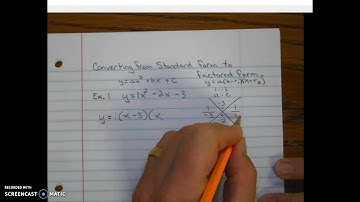 Converting from Standard Form to
factored form.
y=ax²+bx+c
y=a(x-r₁)(x-r₂)
Ex. 1 y=1x²-2x-3
y=1(x-3)(x
-3
1
-3
1
-2
RECORDED WITH
SCREENCAST MATIC